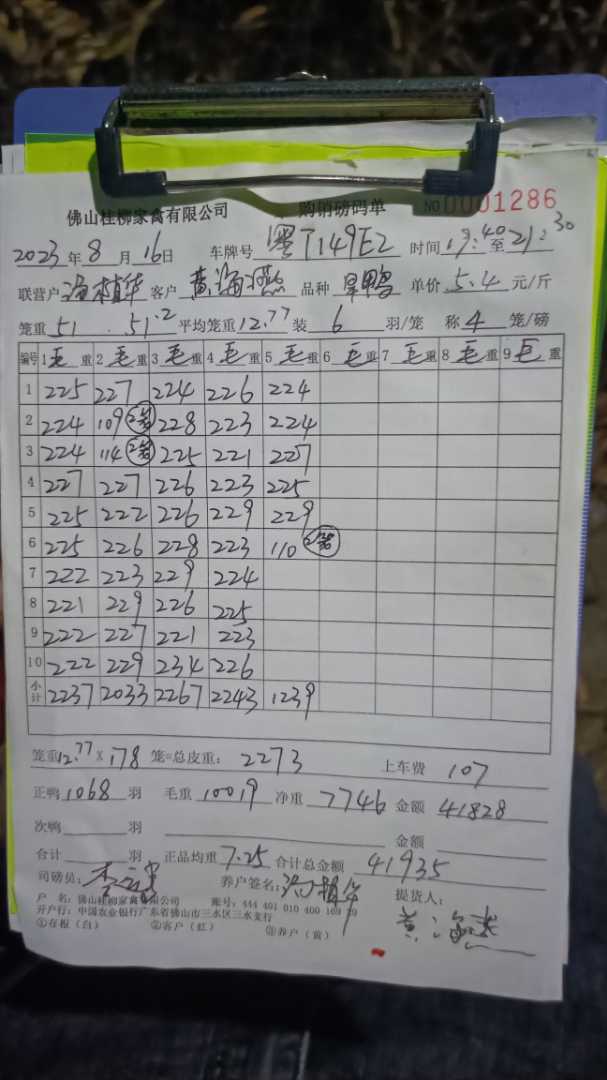 佛山桂柳家禽有限公司 购销磅码单 NO 0001286
2023年8月16日 车牌号 粤T149E2 时间 19:40至21:30
联营户 植华 客户 黄海燕 品种 旱鸭 单价 5.4 元/斤
笼重 51 . 51.2 平均笼重 12.77 装 6 羽/笼 称 4 笼/磅
编号 1 毛重 2 毛重 3 毛重 4 毛重 5 毛重 6 毛重 7 毛重 8 毛重 9 毛重
1 225 227 224 226 224
2 224 109 2笼 228 223 224
3 224 114 2笼 225 221 227
4 227 227 226 223 225
5 225 222 226 229 229
6 225 226 228 223 110 2笼
7 222 223 229 224
8 221 229 226 225
9 222 227 221 223
10 222 229 234 226
小计 2237 2033 2267 2243 1239
笼重 12.77 × 178 笼=总皮重: 2273 上车费 107
正鸭 1068 羽 毛重 10019 净重 7746 金额 41828
次鸭 羽 金额
合计 羽 正品均重 7.25 合计总金额 41935
司磅员: 养户签名: 植华 提货人:
户 名: 佛山桂柳家禽有限公司 账号: 444 401 010 400 169 39
开户行: 中国农业银行广东省佛山市三水区三水支行 黄海燕
①存根(白) ②客户(红) ③养户(黄)